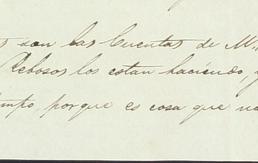 son las Cuentas de M
Rebosos los estan haciendo,
porque es cosa que no